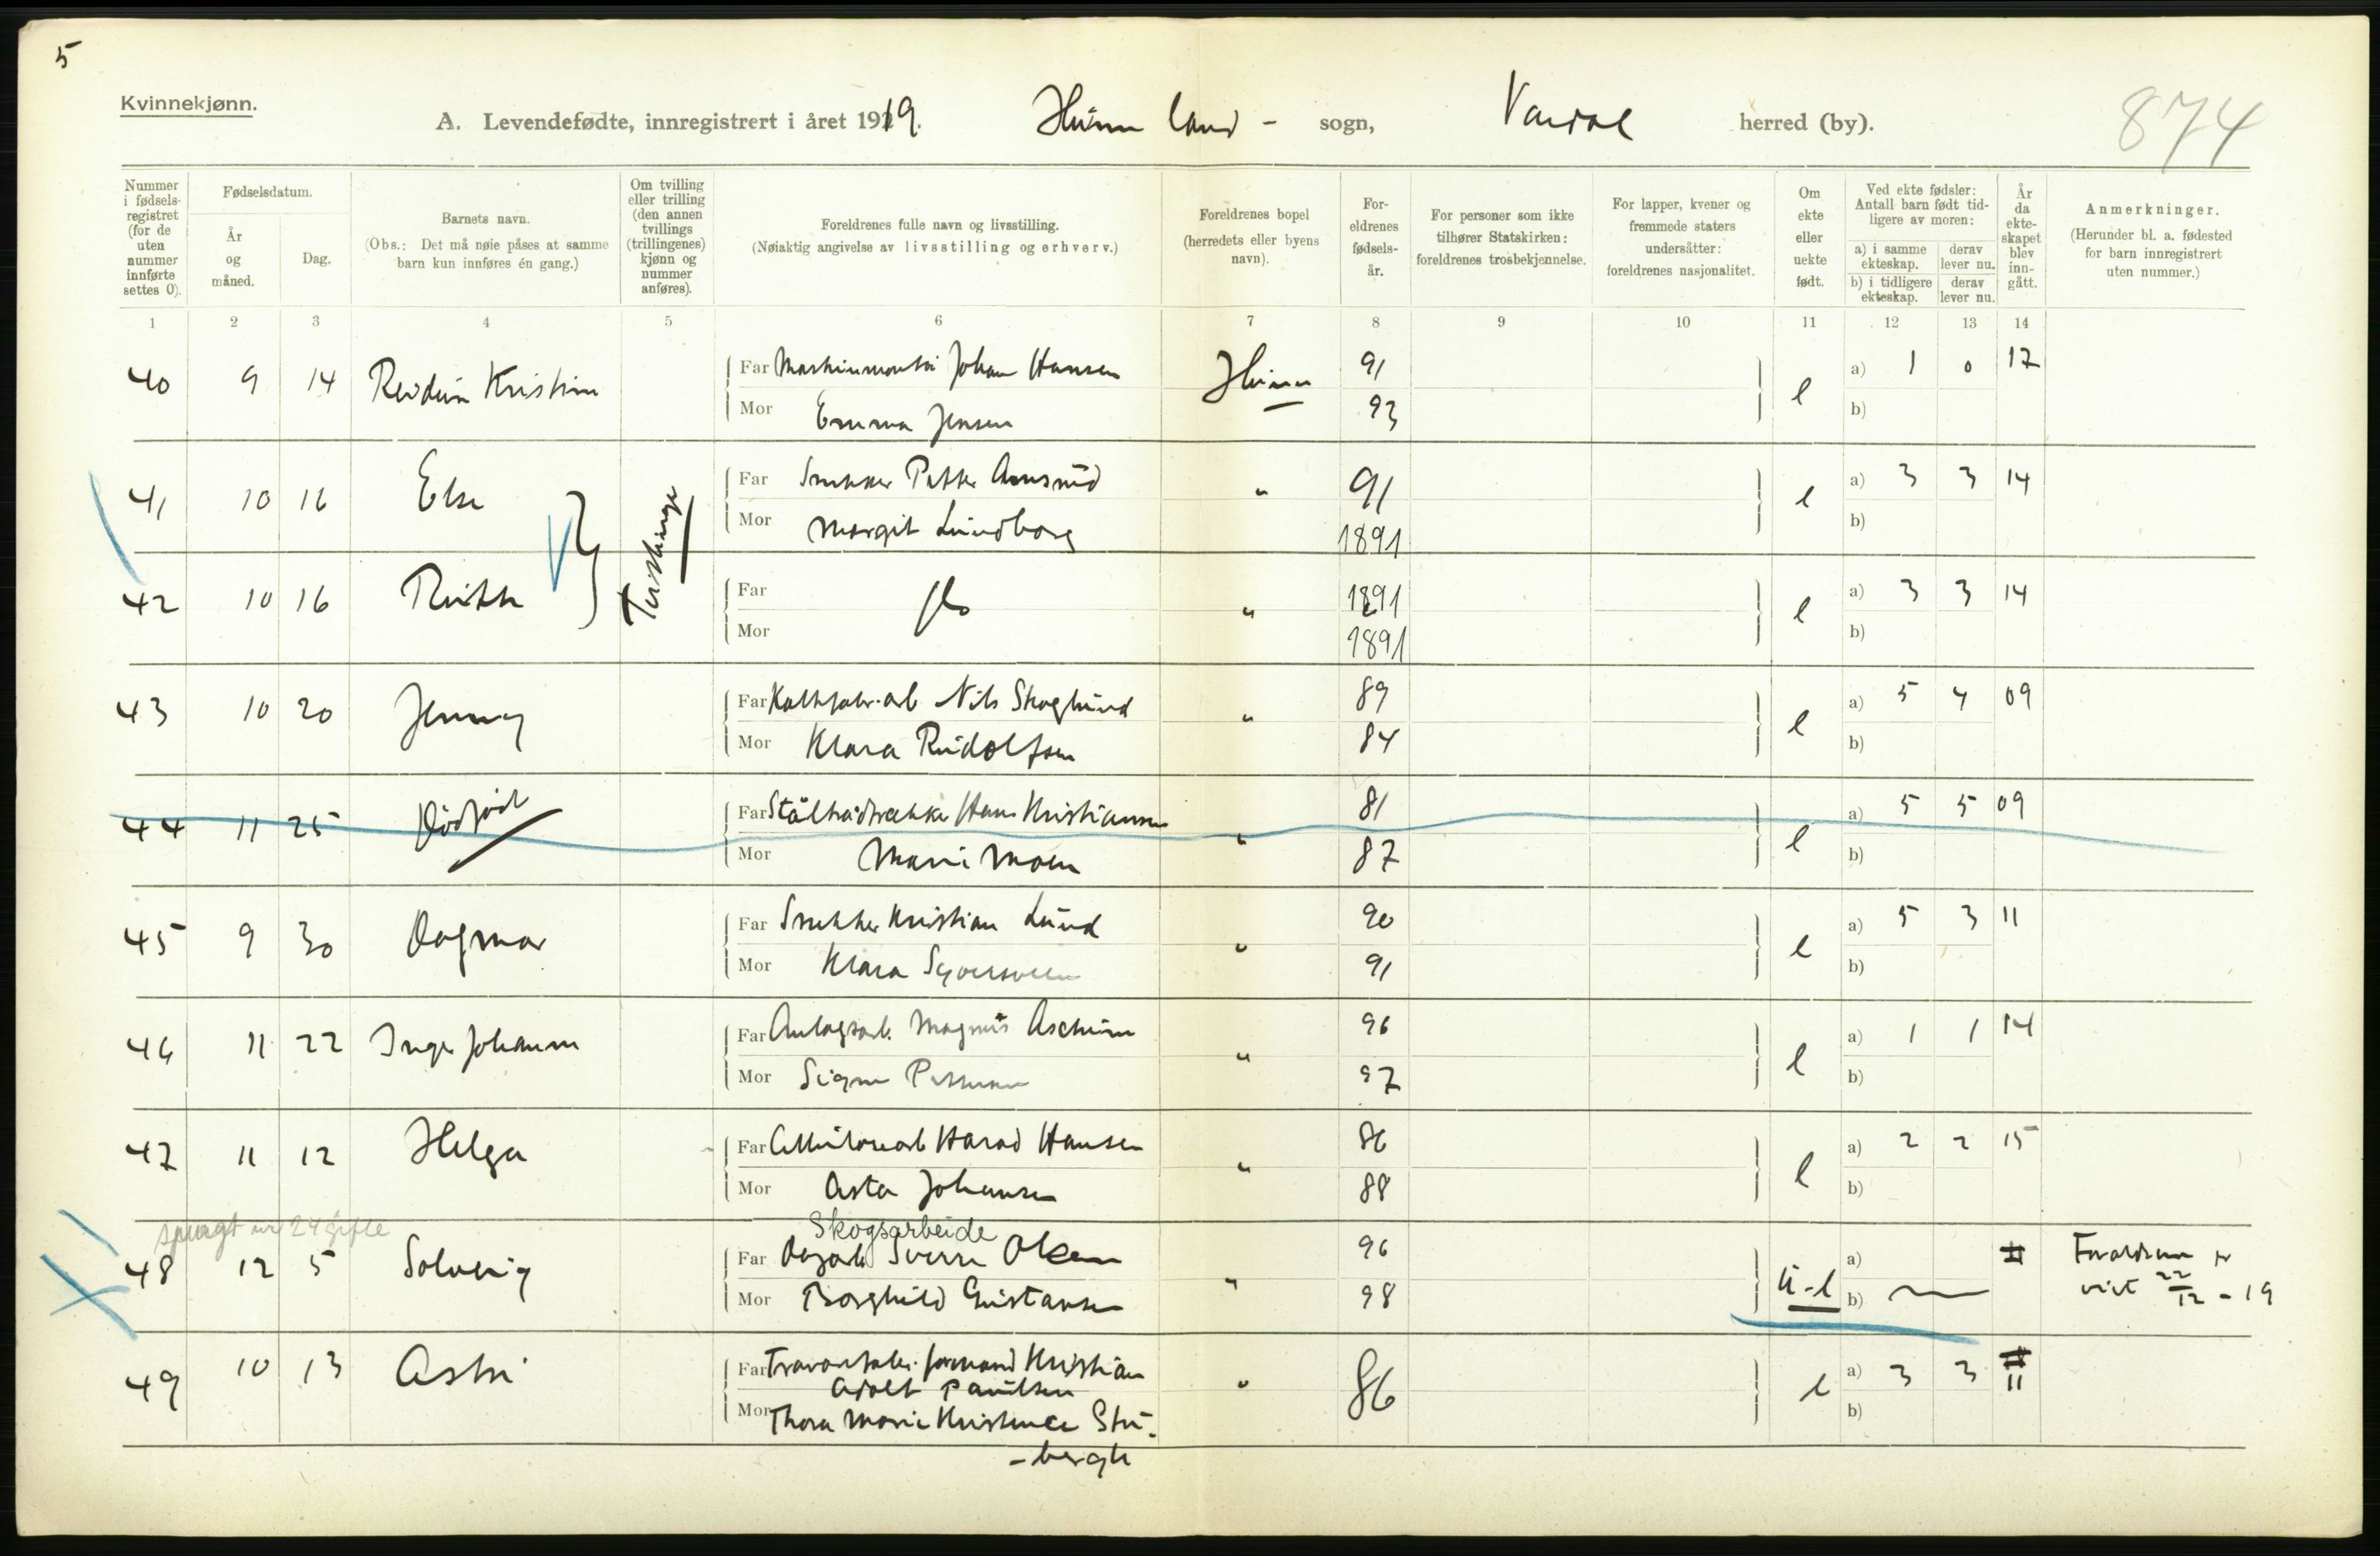 5
Kvinnekjønn.
A. Levendefødte, innregistrert i året 1919. Hunn land - sogn, Vardal herred (by). 874
Nummer i fødselsregistret (for de uten nummer innførte settes 0).
Fødselsdatum.
År og måned.
Dag.
Barnets navn.
(Obs.: Det må nøie påses at samme barn kun innføres én gang.)
Om tvilling eller trilling (den annen tvillings (trillingenes) kjønn og nummer anføres).
Foreldrenes fulle navn og livsstilling.
(Nøiaktig angivelse av livsstilling og erhverv.)
Foreldrenes bopel (herredets eller byens navn).
Foreldrenes fødselsår.
For personer som ikke tilhører Statskirken: foreldrenes trosbekjennelse.
For lapper, kvener og fremmede staters undersåtter: foreldrenes nasjonalitet.
Om ekte eller uekte født.
Ved ekte fødsler: Antall barn født tidligere av moren:
a) i samme ekteskap. derav lever nu.
b) i tidligere ekteskap. derav lever nu.
År da ekteskapet blev inngått.
Anmerkninger.
(Herunder bl. a. fødested for barn innregistrert uten nummer.)
1 2 3 4 5 6 7 8 9 10 11 12 13 14
40 9 14 Reidun Kristine Far Johan Hansen Hunn 91 e a) 1 0 17
Mor Emma Jensen 93 b)
41 10 16 Else Far Snekker Petter " 91 e a) 3 3 14
Mor Margit Lundborg 1891 b)
Tvillinger
42 10 16 Ruth Far do " 1891 e a) 3 3 14
Mor 1891 b)
43 10 20 Jenny Far Nils Skoglund " 89 e a) 5 4 09
Mor Klara Rudolfsen 84 b)
44 11 25 Dødfødt Far Hans Kristiansen " 81 e a) 5 5 09
Mor Marie Moen 87 b)
45 9 30 Dagmar Far Snekker Kristian Lund " 90 e a) 5 3 11
Mor Klara 91 b)
46 11 22 Inga Johanne Far Anlegsarb. Magnus " 96 e a) 1 1 14
Mor Signe 97 b)
47 11 12 Helga Far Hansen " 86 e a) 2 2 15
Mor Asta Johansen 88 b)
spurgt nr 24 gifte
Skogsarbeide
48 12 5 Solveig Far Dagarb Sverre Olsen " 96 u-e a)
Mor Borghild Gustavsen 98 b)
viet 22/12 - 19
49 10 13 Astri Far formand Kristian " 86 e a) 3 3 11
Adolf Paulsen
Mor Thora Marie Kristence Stu- b)
-bergh